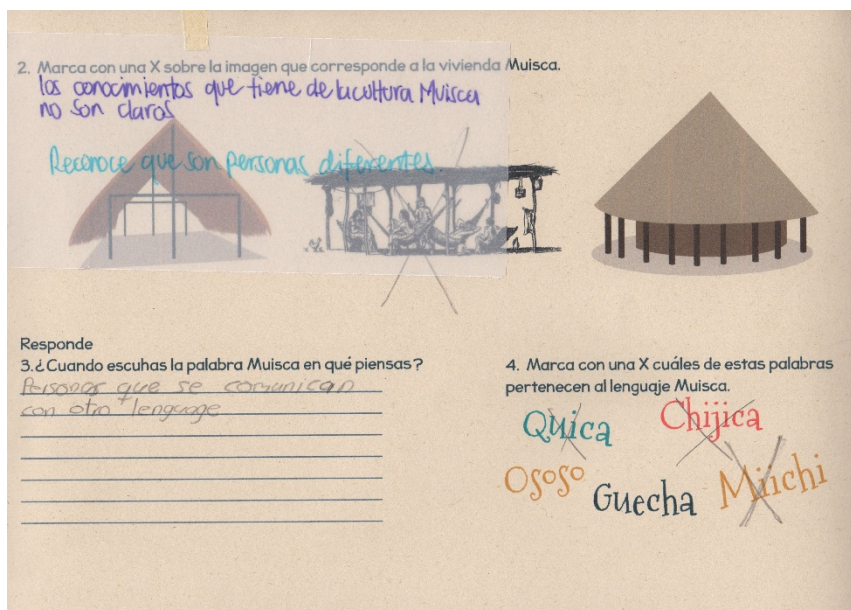 2. Marca con una X sobre la imagen que corresponde a la vivienda Muisca.
los conocimientos que tiene de la cultura Muisca
no son claros
Reconoce que son personas diferentes.
Responde
3.¿Cuando escuhas la palabra Muisca en qué piensas?
Personas que se comunican
con otro lenguage
4. Marca con una X cuáles de estas palabras
pertenecen al lenguaje Muisca.
Quica
Chijica
Ososo
Guecha
Miichi